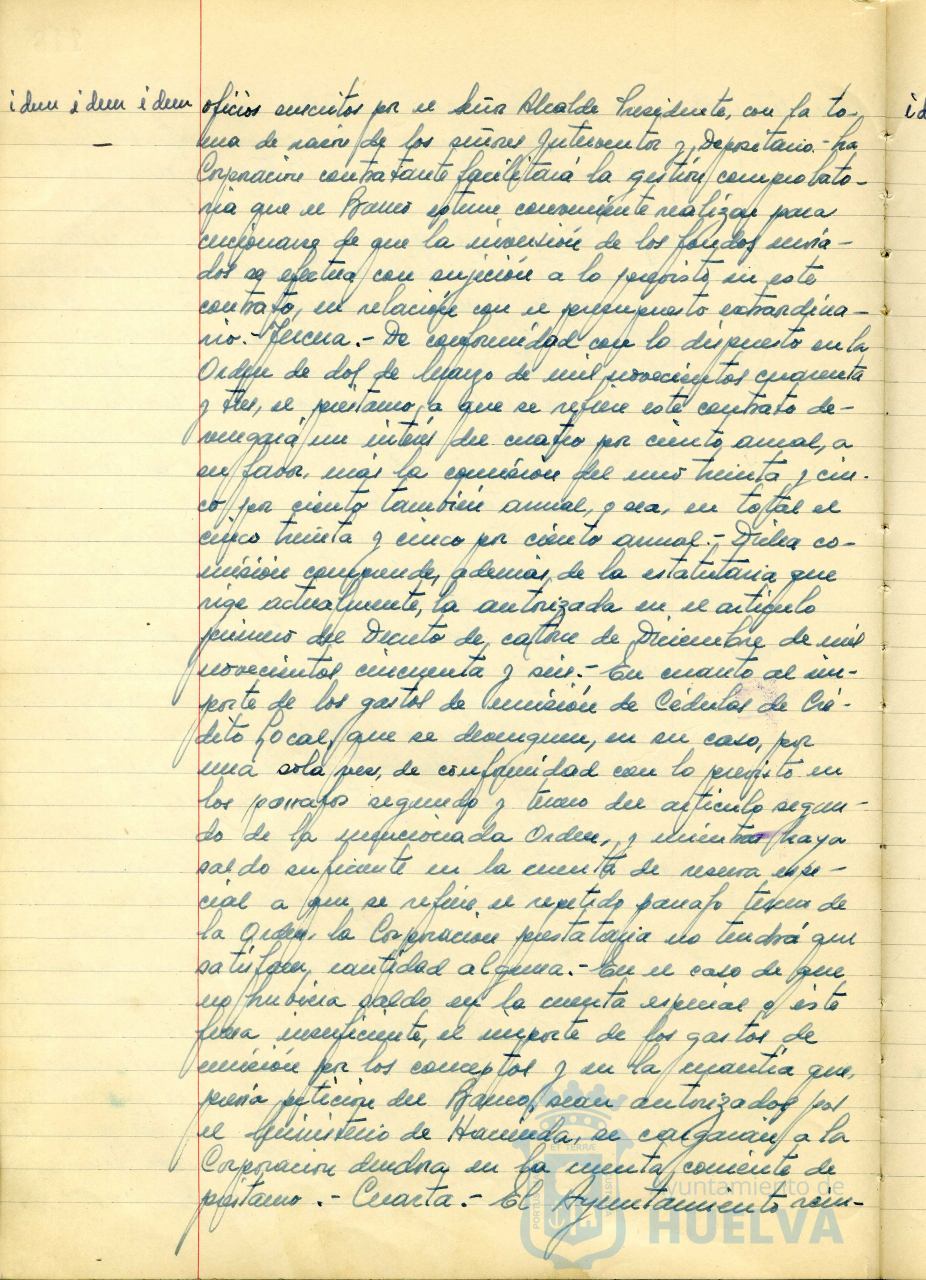 idem idem idem
oficios suscritos por el Señor Alcalde Presidente, con la to-
ma de razón de los señores Interventor y Depositario.- La
Corporación contratante facilitará la gestión comprobato-
ria que el Banco estime conveniente realizar para
cerciorarse de que la inversión de los fondos envia-
dos se efectúa con sujeción a lo previsto en este
contrato, en relación con el presupuesto extraordina-
rio.- Tercera.- De conformidad con lo dispuesto en la
Orden de dos de Marzo de mil novecientos cuarenta
y tres, el préstamo a que se refiere este contrato de-
vengará un interés del cuatro por ciento anual, a
su favor, más la comisión del uno treinta y cin-
co por ciento también anual, o sea, en total el
cinco treinta y cinco por ciento anual.- Dicha co-
misión comprende, además de la estatutaria que
rige actualmente, la autorizada en el artículo
primero del Decreto de catorce de Diciembre de mil
novecientos cincuenta y seis.- En cuanto al im-
porte de los gastos de emisión de Cédulas de Cré-
dito Local, que se devenguen, en su caso, por
una sola vez, de conformidad con lo previsto en
los párrafos segundo y tercero del artículo segun-
do de la mencionada Orden, y mientras haya
saldo suficiente en la cuenta de reserva espe-
cial a que se refiere el repetido párrafo tercero de
la Orden, la Corporación prestataria no tendrá que
satisfacer cantidad alguna.- En el caso de que
no hubiera saldo en la cuenta especial o éste
fuera insuficiente, el importe de los gastos de
emisión por los conceptos y en la cuantía que,
previa petición del Banco, sean autorizados por
el Ministerio de Hacienda, se cargarán a la
Corporación deudora en la cuenta corriente de
préstamo.- Cuarta.- El Ayuntamiento rein-
Ayuntamiento de
HUELVA